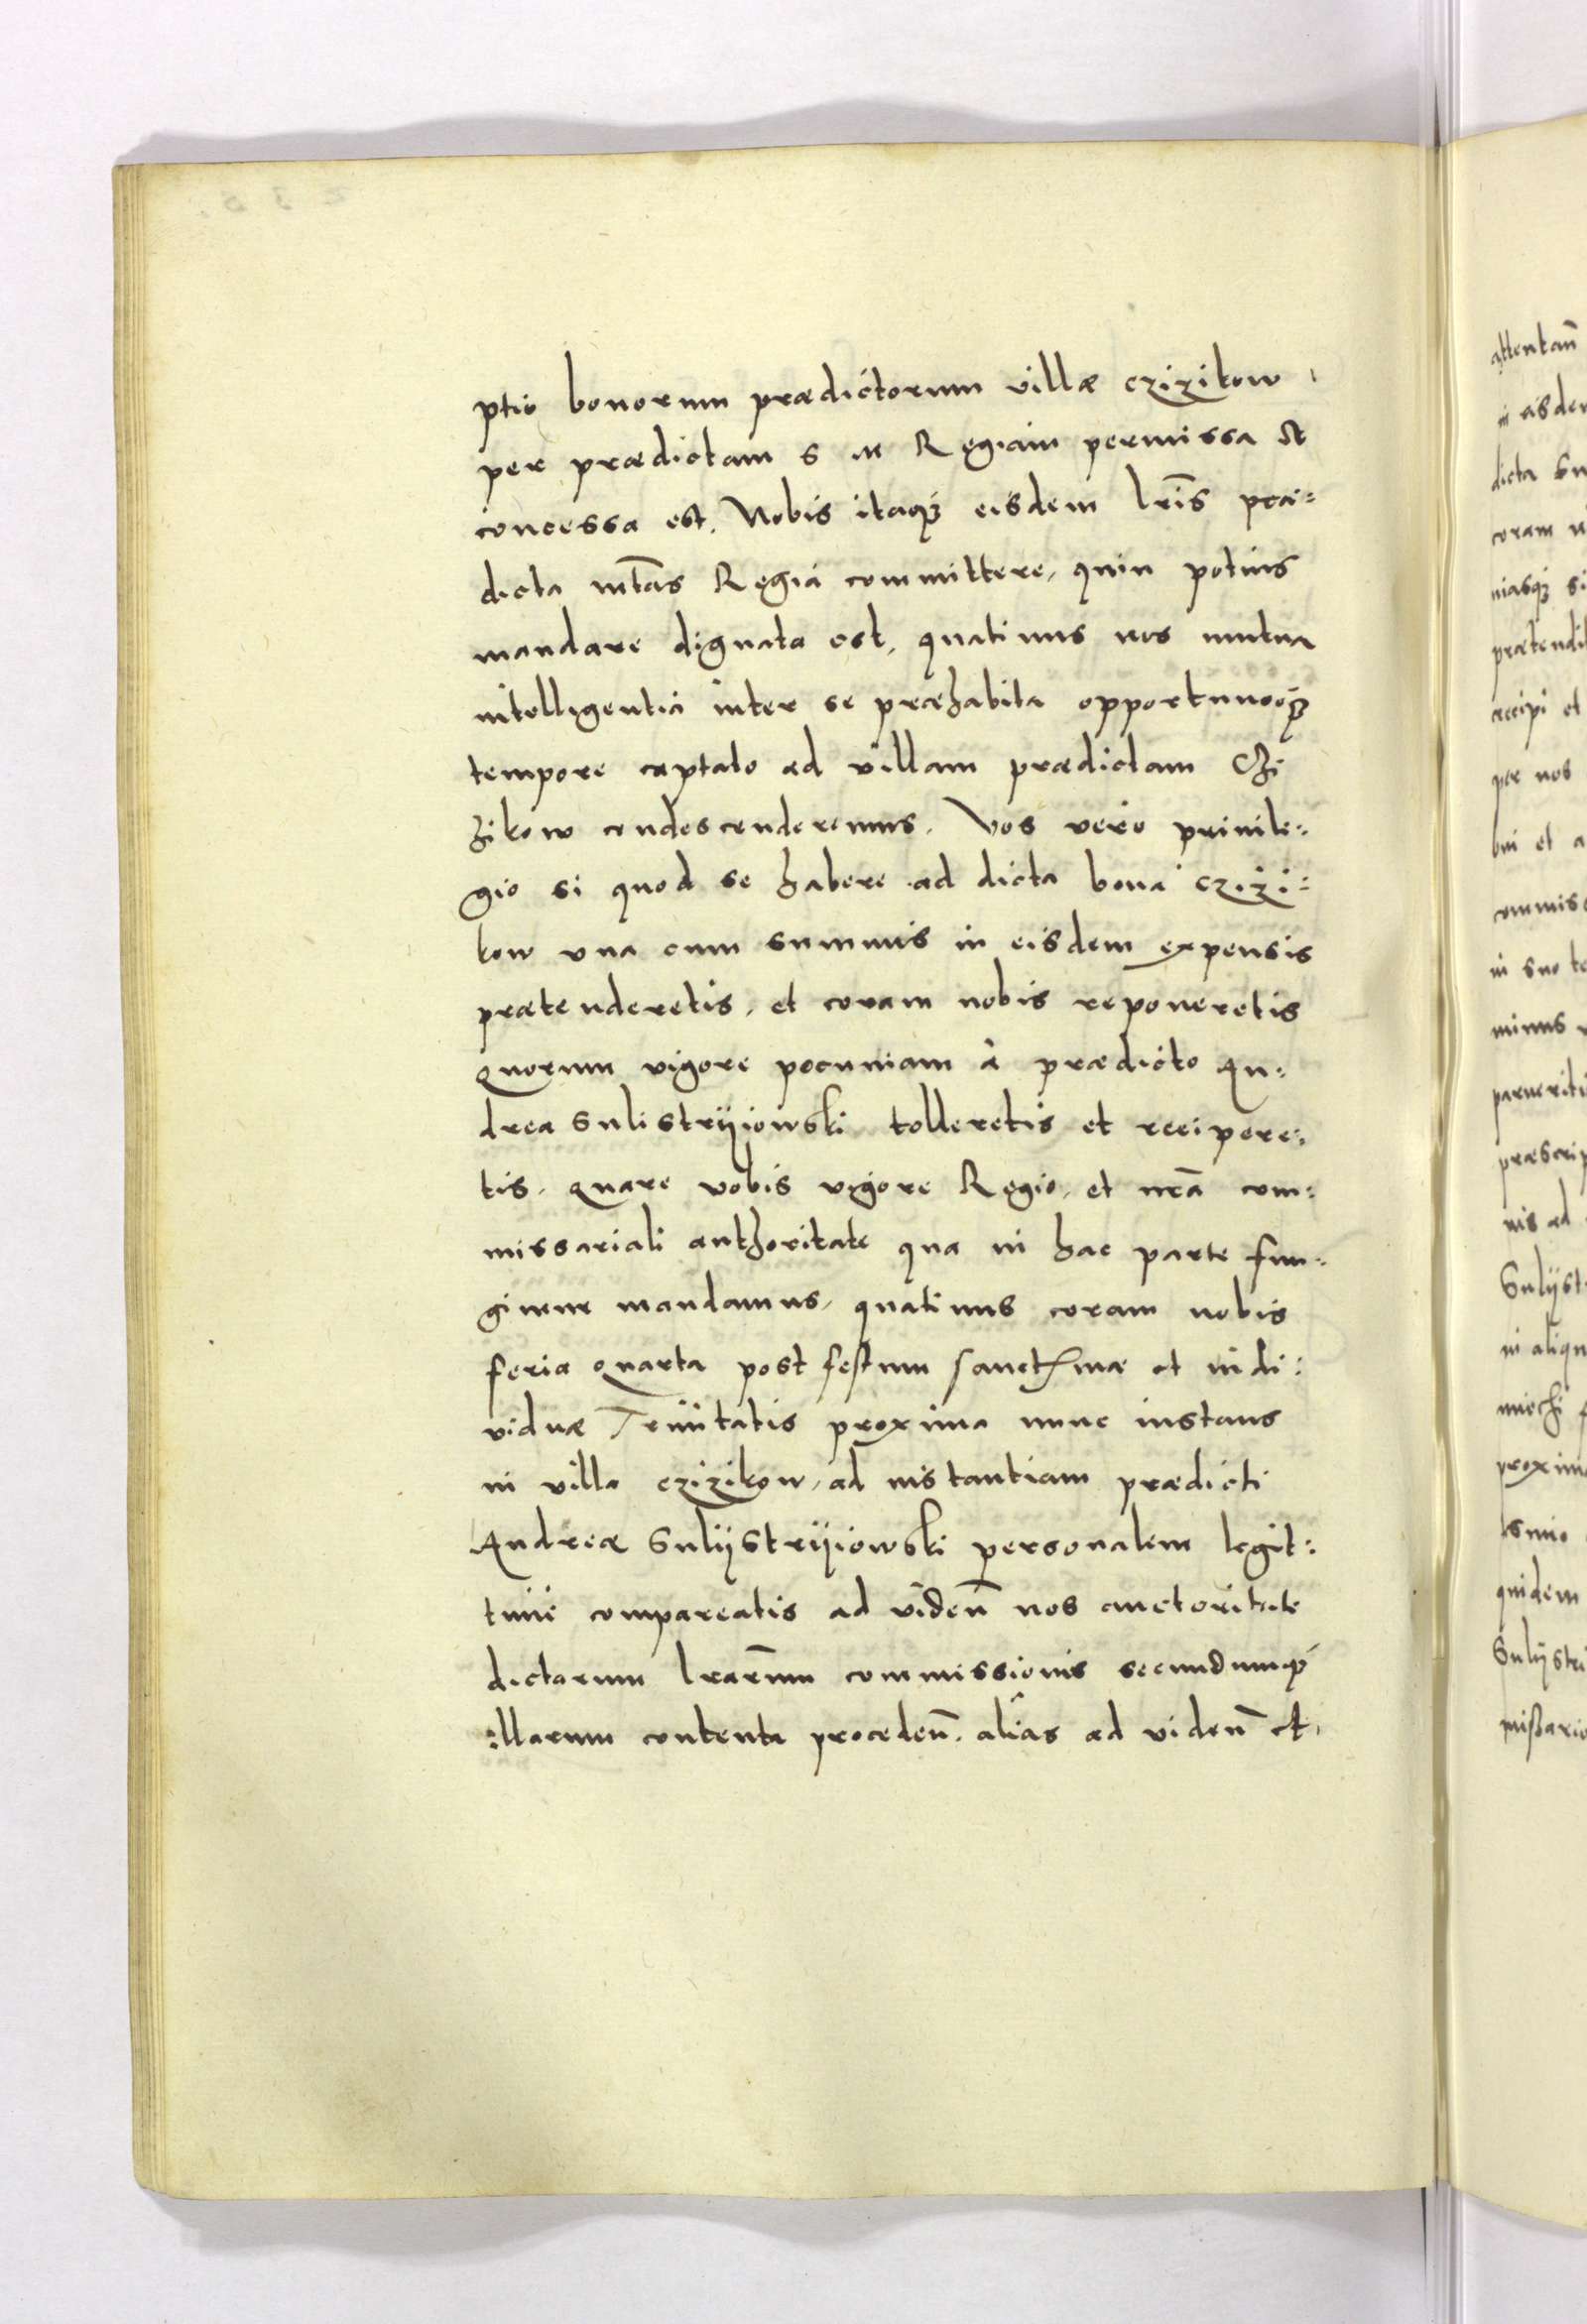 ptio bonorum prædictorum villæ Czizikow
per prædictam S M Regiam permissa et
concessa est. Nobis itaq́ʒ eisdem lr̃is præ:
dicta mt̃as Regia committere, quin potius
mandare dignata est, quatinus nos mutua
intelligentia inter se præhabita opportunooq́ʒ
tempore captato ad villam prædictam Czi
zikow condescenderemus. Vos vero priuile:
gio si quod se habere ad dicta bona Czizi:
kow vna cum summis in eisdem expensis
prætenderetis, et coram nobis reponeretis
quorum vigore pecuniam à prædicto An:
drea Sulistryiowski tolleretis et recipere:
tis. Quare vobis vigore Regio, et nr̃a com:
missariali authoritate qua in hac parte fun:
gimur mandamus, quatinus coram nobis
feria quarta post festum sanctissimæ et indi:
viduæ Trinitatis proxima nunc instans
in villa Czizikow, ad instantiam prædicti
Andreæ Sulyistryiowski personalem legit:
time compareatis ad viden̄ nos auctoritate
dictarum lrar̃um commissionis secundumq́
illarum contenta proceden̄. aliâs ad viden̄ et
attentan̄
in eisdem
dicta
coram
niasq́ʒ
prætendit
accipi et
per nos
et a
in suo
minus
præscrip
nis ad
in aliqu
proxim
quidem